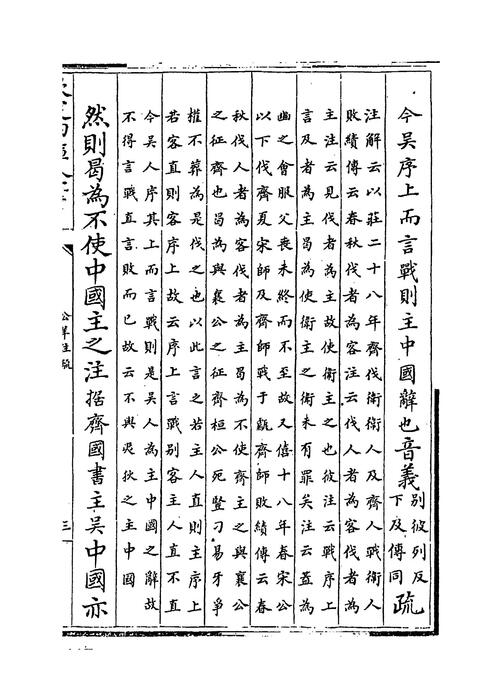 今吳序上而言戰則主中國辭也音義別彼列反下及傳同疏
注解云以莊二十八年齊伐衛衛人及齊人戰衛人
敗績傳云春秋伐者為客注云伐人者為客伐者為
主注云見伐者為主故使衛主之也彼注云戰序上
言及者為主曷為使衛主之衛未有罪矣注云蓋為
幽之會服父喪未終而不至故又僖十八年春宋公
以下伐齊夏宋師及齊師戰于甗齊師敗績傳云春
秋伐人者為客伐者為主曷為不使齊主之與襄公
之征齊也曷為與襄公之征齊桓公死豎刁易牙爭
權不葬為是伐之也以此言之若主人直則主序上
若客直則客序上故云序上言戰別客主人直不直
今吳人序其上而言戰則是吳人為主中國之辭故
不得言戰直言敗而已故云不與夷狄之主中國
然則曷為不使中國主之注据齊國書主吳中國亦
公羊注疏
三